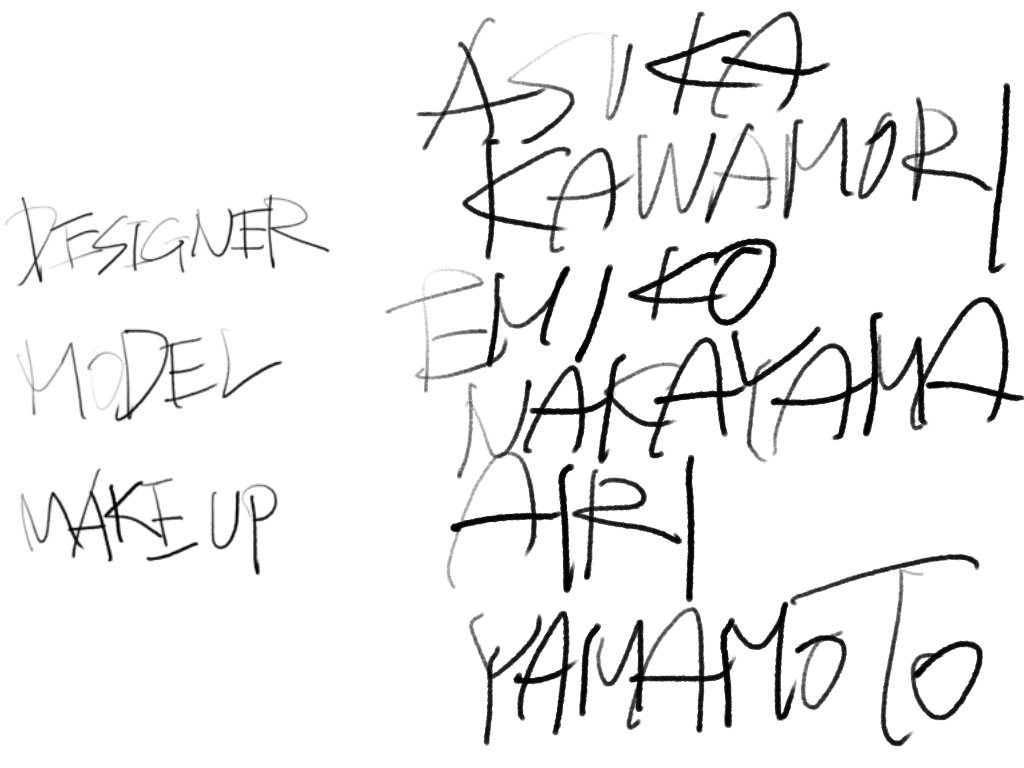 DESIGNER
MODEL
MAKE UP
ASUKA
KAWAMORI
EMIKO
NAKAYAMA
AIRI
YAMAMOTO